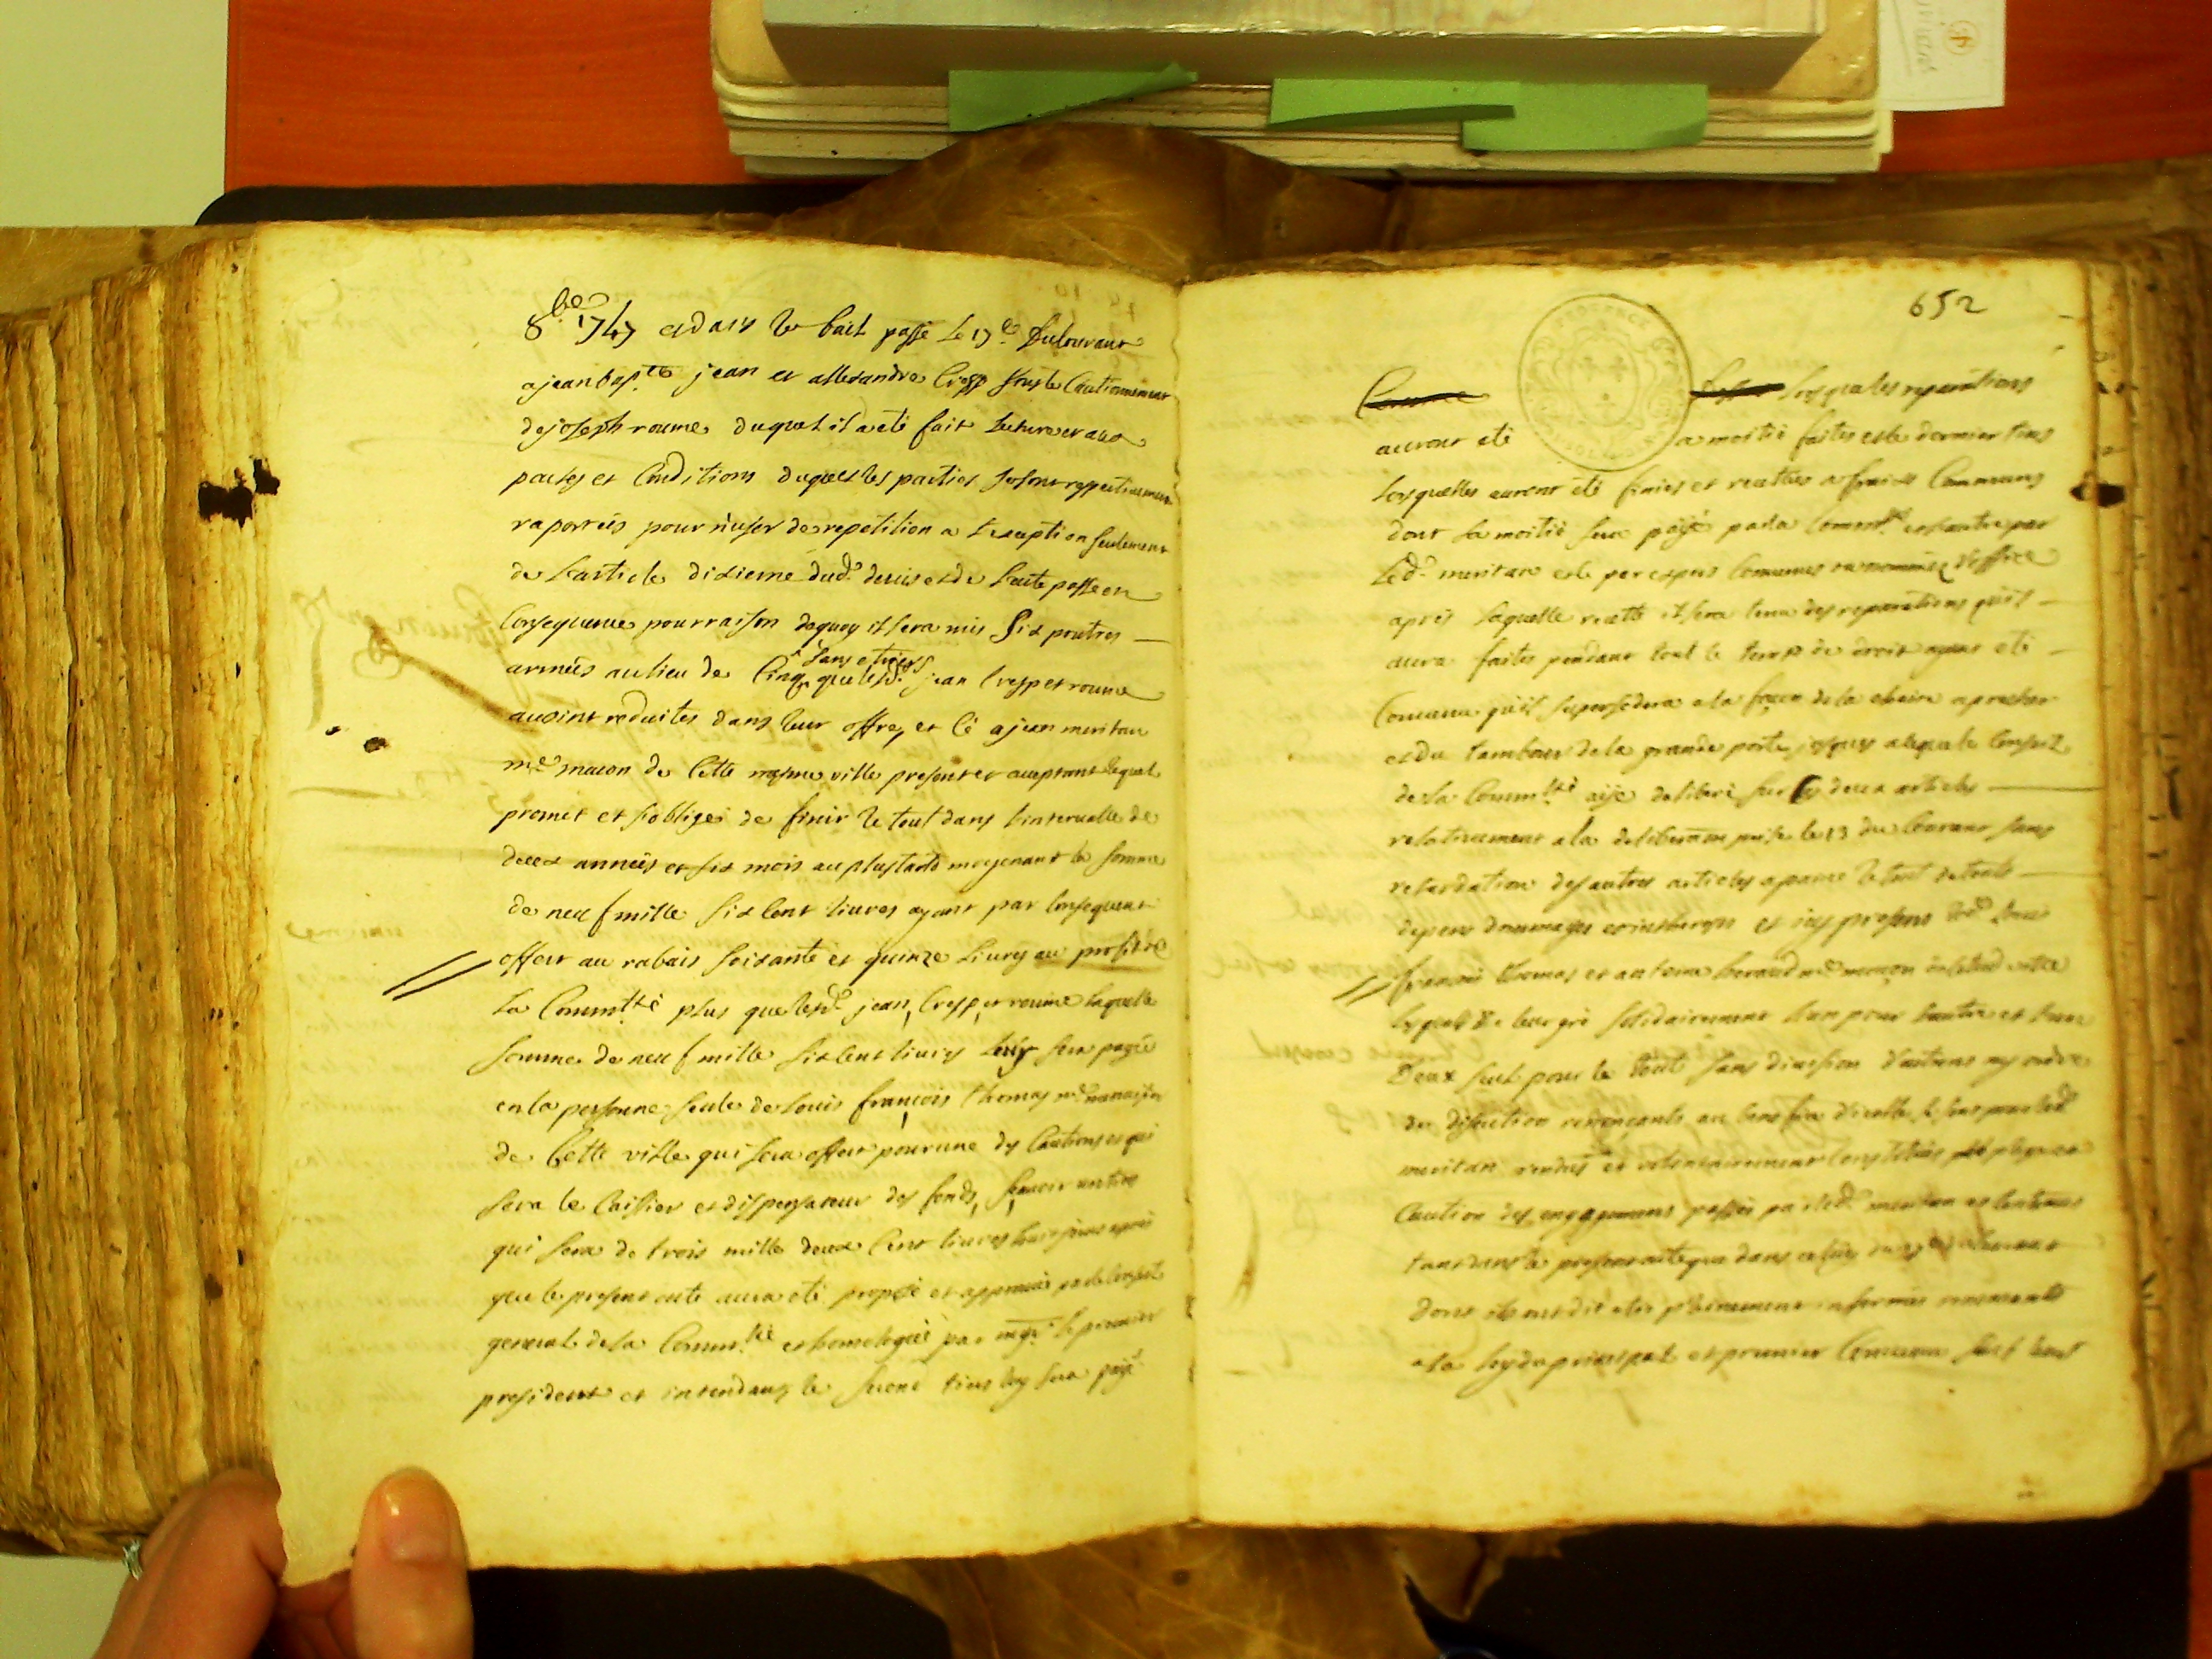 8bre 1747 et dans le bail passé le 17e du Courant
a jean bapte jean et allexandre Cresp sous le Cautionnement
de joseph roume duquel il a eté fait lecture et aux
pactes et Conditions duquel les parties se sont respectivement
raportées pour n'user de repetition a l'exception seulement
de l'article dixieme dud. devis et de l'acte passé en
Consequence pour raison de quoy il sera mis six poutres
armées au lieu de Cinq sans etriers que lesd. jean Cresp et roume
avoint reduites dans leur offre, et Ce a jean meritan
me macon de Cette mesme ville present et acceptant lequel
promet et s'obliger de finir le tout dans l'intervalle de
deux années et six mois au plus tard moyenant la somme
de neuf mille six Cent livres ayant par Consequent
offert au rabais soixante et quinze Livres au profit de
la Commté plus que lesd. jean, Cresp, et roume laquelle
somme de neuf mille six Cent livres luy sera payée
en la personne seule de Louis françois thomas md
de Cette ville qui sera offert pour une des Cautions et qui
sera le Caissier et dispensateur des fonds, scavoir un tiers
qui sera de trois mille deux Cent livres huit jours apres
que le present acte aura eté proposé et approuvé par le Conseil
general de la Commté et homologué par mgr. le premier
president et intendant, le second tiers luy sera payé
652
lorsque les reparations
auront eté a moitié faites et le dernier tiers
lorsquelles auront eté finies et recettées a fraix Communs
dont la moitié sera payé par la Commté et l'autre par
Led. meritan et le par experts Communs ou nommés d'office
après laquelle recette il sera tenu des reparations qu'il
aura faites pendant tout le temps de droit ayant eté
Convenu qu'il supersedera a la façon de la chaire a precher
et du tambour de la grande porte jusques a ce que le Conseil
de la Commté aije deliberé sur les deux articles
relativement a la deliberation prise le 13 du Courant sans
retardation des autres articles a peine de tout
depens dommages et interets et icy presens Louis
françois thomas et antoine beraud me macon
lesquels de leur gré solidairement l'un pour l'autre et l'un
Deux seul pour le tout sans division d'actions ny ordre
de discution renonçants au benefice d'icelle se sont pour led.
meritan rendus et volontairement Constitués pleges et
Caution des engagemens passés par led. meritan et Contenus
tant dans le present acte que dans celuy du 17e du Courant
dont ils ont dit etre pleinement informés renonçants
a la loy du principal et premier Convenu